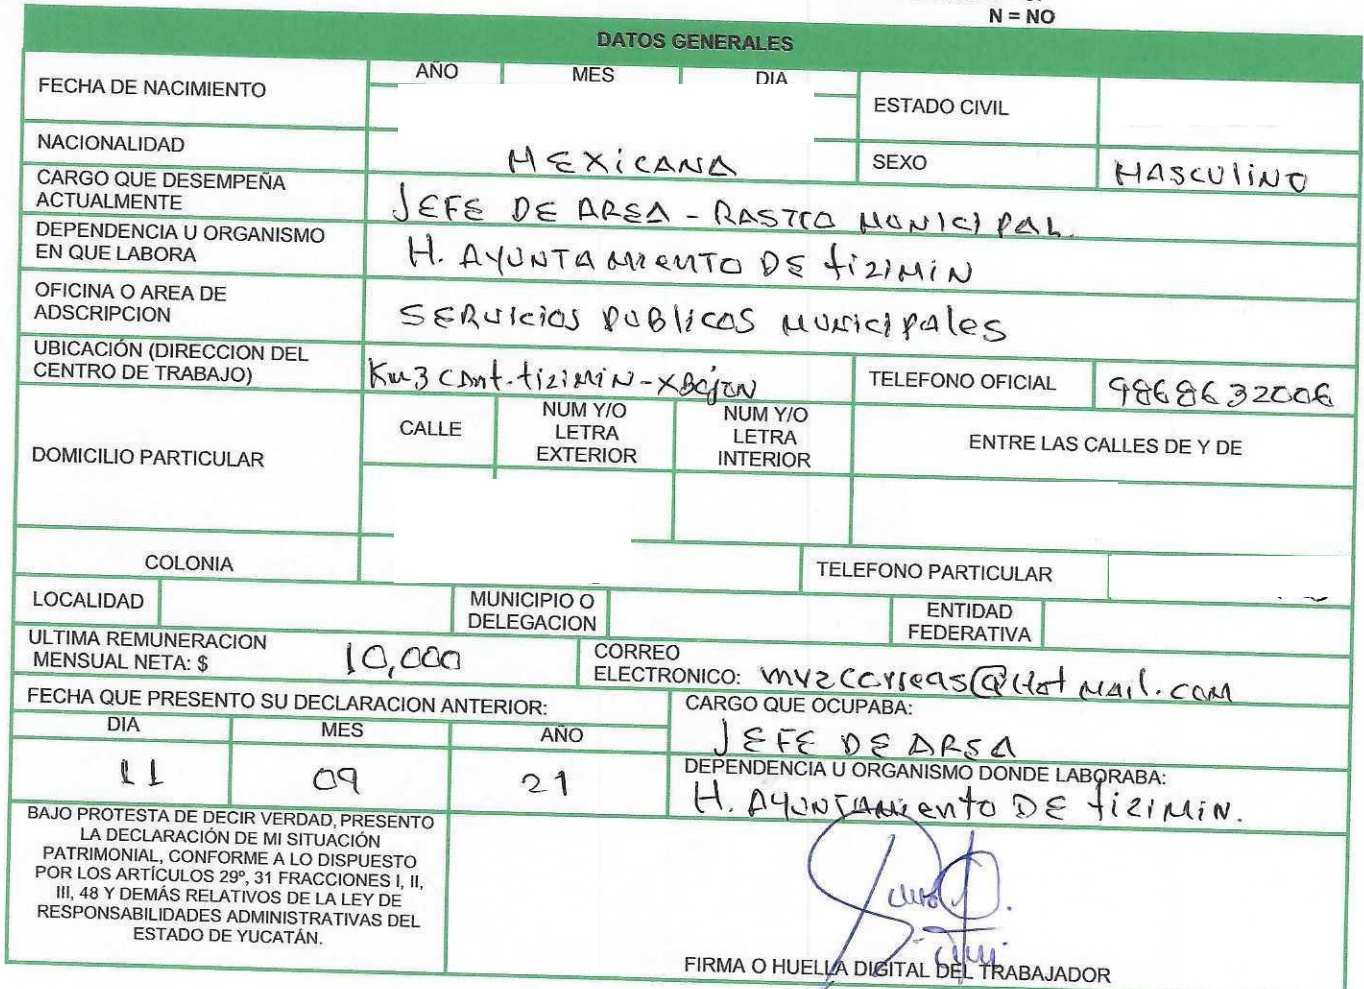 N = NO
DATOS GENERALES
FECHA DE NACIMIENTO
AÑO MES DIA
ESTADO CIVIL
NACIONALIDAD MEXiCANA SEXO MASCULiNO
CARGO QUE DESEMPEÑA
ACTUALMENTE
JEFE DE AREA - RASTRO MUNICIPAL.
DEPENDENCIA U ORGANISMO
EN QUE LABORA
H. AYUNTAMIENTO DE tizimiN
OFICINA O AREA DE
ADSCRIPCION
SERVICIOS PUBLICOS MUNICIPALES
UBICACIÓN (DIRECCION DEL
CENTRO DE TRABAJO)
Km 3 tizimiN
TELEFONO OFICIAL 9868632006
DOMICILIO PARTICULAR
CALLE
NUM Y/O
LETRA
EXTERIOR
NUM Y/O
LETRA
INTERIOR
ENTRE LAS CALLES DE Y DE
COLONIA TELEFONO PARTICULAR
LOCALIDAD
MUNICIPIO O
DELEGACION
ENTIDAD
FEDERATIVA
ULTIMA REMUNERACION
MENSUAL NETA: $ 10,000
CORREO
ELECTRONICO: mvzcorreas@Hotmail.com
FECHA QUE PRESENTO SU DECLARACION ANTERIOR:
DIA MES AÑO
11 09 21
CARGO QUE OCUPABA:
JEFE DE AREA
DEPENDENCIA U ORGANISMO DONDE LABORABA:
H. AYUNTAMiento DE tizimiN.
BAJO PROTESTA DE DECIR VERDAD, PRESENTO
LA DECLARACIÓN DE MI SITUACIÓN
PATRIMONIAL, CONFORME A LO DISPUESTO
POR LOS ARTÍCULOS 29º, 31 FRACCIONES I, II,
III, 48 Y DEMÁS RELATIVOS DE LA LEY DE
RESPONSABILIDADES ADMINISTRATIVAS DEL
ESTADO DE YUCATÁN.
FIRMA O HUELLA DIGITAL DEL TRABAJADOR